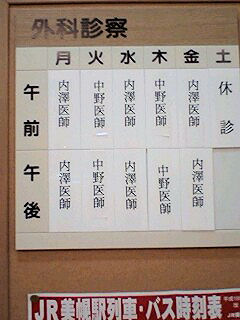 外科診察
月 火 水 木 金 土
午前 内澤医師 中野医師 内澤医師 中野医師 内澤医師 休診
午後 内澤医師 中野医師 内澤医師 中野医師 内澤医師
JR美幌駅列車・バス時刻表